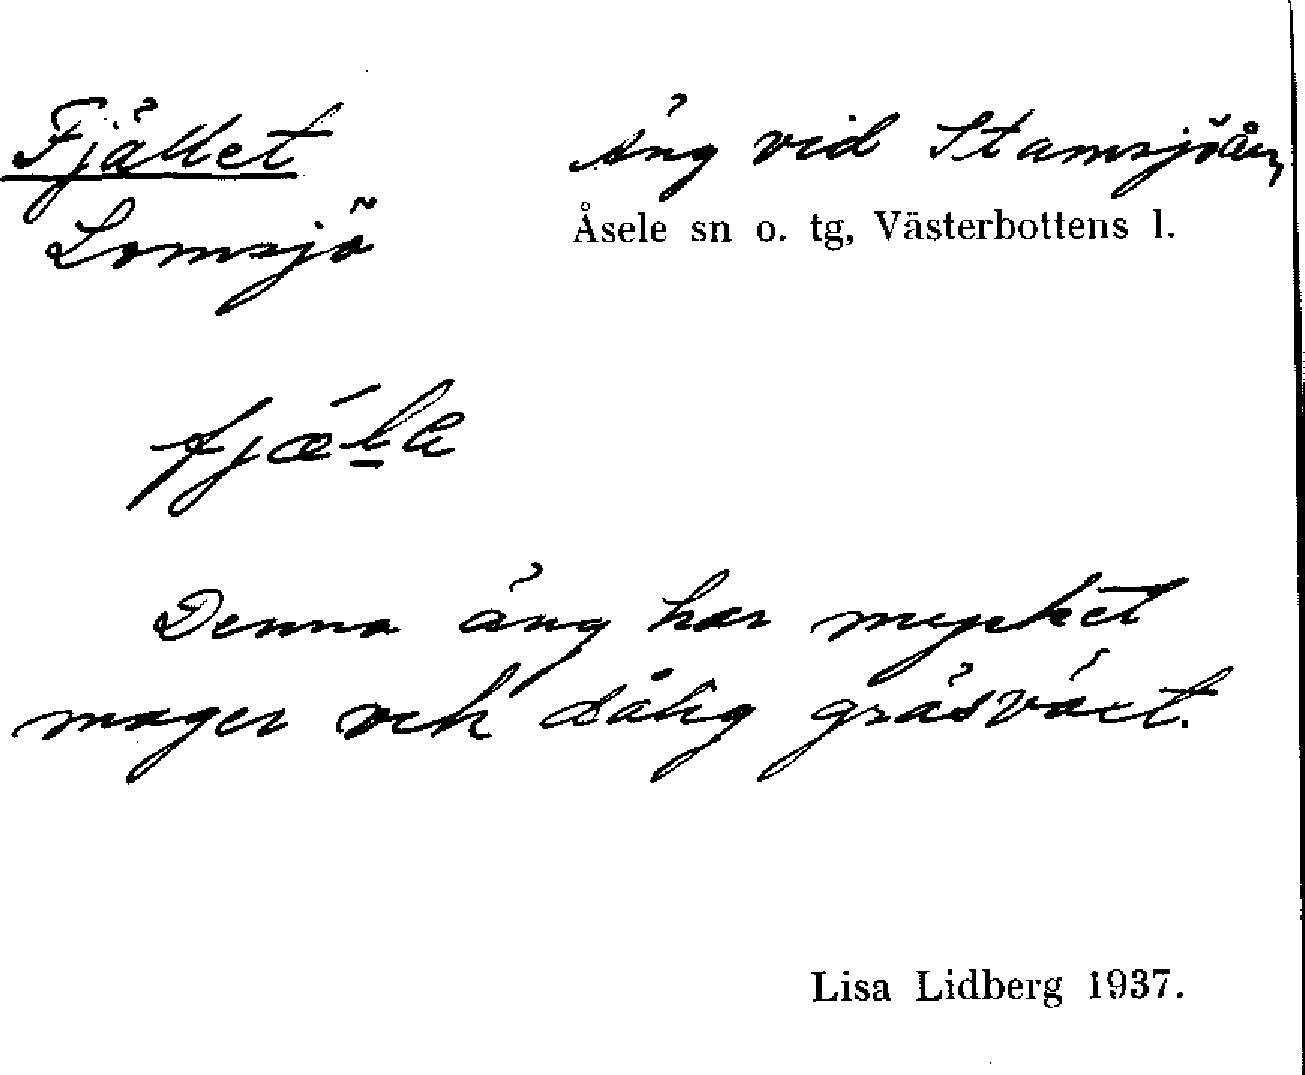 Fjället
Äng vid Stamsjöån,
Lomsjö
Åsele sn o. tg, Västerbottens l.
Denna äng har mycket
mager och dålig gräsväxt.
Lisa Lidberg 1937.